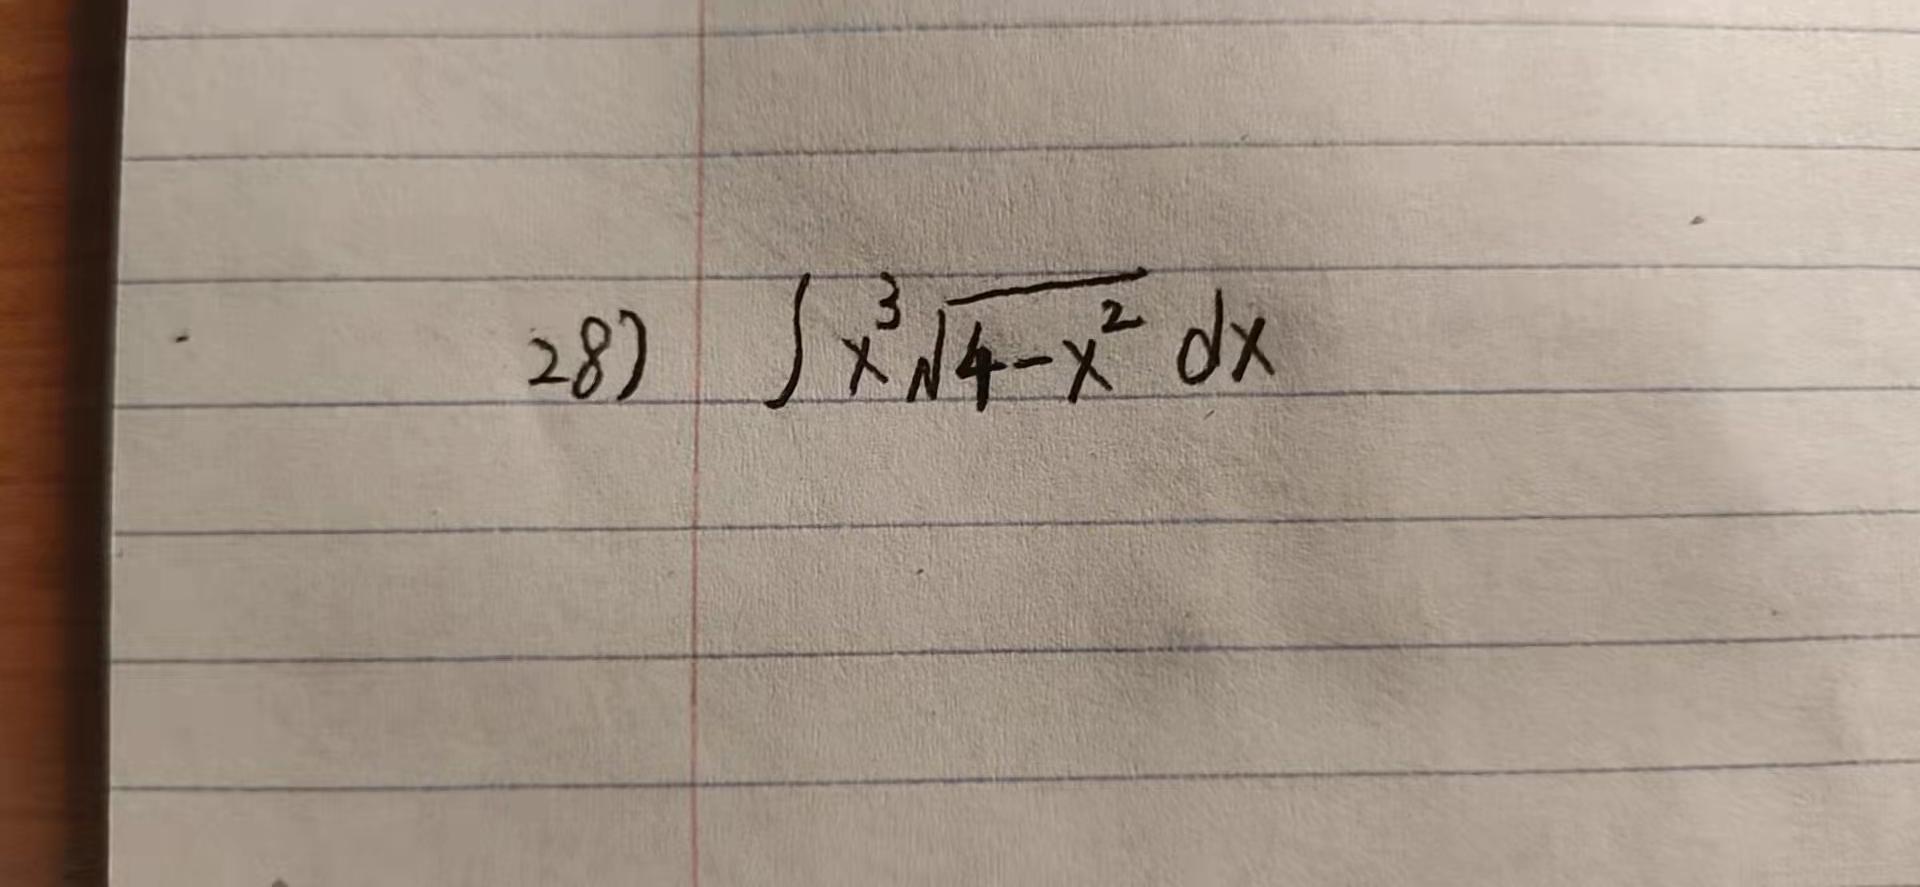 28) ∫ x³√(4-x²) dx